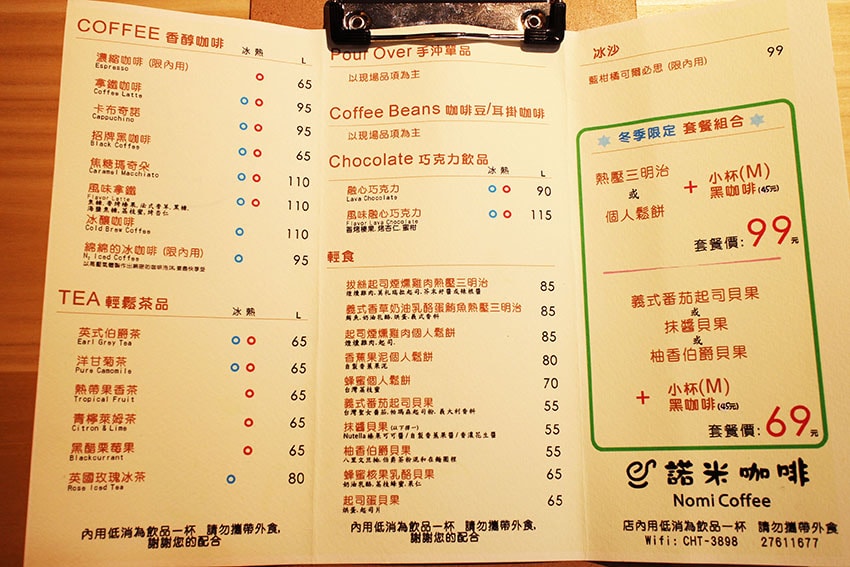 COFFEE 香醇咖啡 冰 熱 L
濃縮咖啡 (限內用) 65
Espresso
拿鐵咖啡 95
Coffee Latte
卡布奇諾 95
Cappuchino
招牌黑咖啡 65
Black Coffee
焦糖瑪奇朵 110
Caramel Macchiato
風味拿鐵 110
Flavor Latte
冰釀咖啡 110
Cold Brew Coffee
綿綿的冰咖啡 (限內用) 95
N₂ Iced Coffee
TEA 輕鬆茶品 冰 熱 L
英式伯爵茶 65
Earl Grey Tea
洋甘菊茶 65
Pure Camomile
熱帶果香茶 65
Tropical Fruit
青檸萊姆茶 65
Citron & Lime
黑醋栗莓果 65
Blackcurrant
英國玫瑰冰茶 80
Rose Iced Tea
內用低消為飲品一杯 請勿攜帶外食,
謝謝您的配合
Pour Over 手沖單品
以現場品項為主
Coffee Beans 咖啡豆/耳掛咖啡
以現場品項為主
Chocolate 巧克力飲品 冰 熱 L
融心巧克力 90
Lava Chocolate
風味融心巧克力 115
Flavor Lava Chocolate
輕食
拔絲起司煙燻雞肉熱壓三明治 85
義式香草奶油乳酪蛋鮪魚熱壓三明治 85
起司煙燻雞肉個人鬆餅 85
煙燻雞肉,起司.
香蕉果泥個人鬆餅 80
自製香蕉果泥
蜂蜜個人鬆餅 70
台灣荔枝蜜
義式番茄起司貝果 55
抹醬貝果 (以下擇一) 55
Nutella榛果可可醬/自製香蕉果醬/香濃花生醬
柚香伯爵貝果 55
蜂蜜核果乳酪貝果 65
奶油乳酪,荔枝蜂蜜,果仁
起司蛋貝果 65
烘蛋,起司片
內用低消為飲品一杯 請勿攜帶外食,
謝謝您的配合
冰沙
藍柑橘可爾必思 (限內用) 99
冬季限定 套餐組合
熱壓三明治
或
個人鬆餅
+ 小杯(M)
黑咖啡(45元)
套餐價: 99元
義式番茄起司貝果
或
抹醬貝果
或
柚香伯爵貝果
+ 小杯(M)
黑咖啡(45元)
套餐價: 69元
諾米咖啡
Nomi Coffee
店內用低消為飲品一杯 請勿攜帶外食
Wifi: CHT-3898 27611677